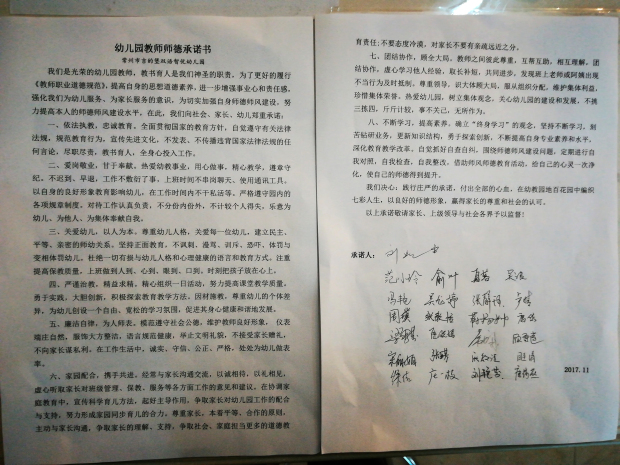 幼儿园教师师德承诺书
我们是光荣的幼儿园教师，教书育人是我们神圣的职责。为了更好的履行
《教师职业道德规范》，提高自身的思想道德素养，进一步增强事业心和责任感，
强化我们为幼儿服务、为家长服务的意识，为切实加强自身师德师风建设，努
力提高本人的师德师风建设水平，在此，我们向社会、家长、幼儿郑重承诺：
一、依法执教，忠诚教育。全面贯彻国家的教育方针，自觉遵守有关法律
法规，规范教育行为，宣传先进文化，不发表、不传播违背国家法律法规的任
何言论，尽职尽责，教书育人，全身心投入工作。
二、爱岗敬业，甘于奉献。热爱幼教事业，用心做事，精心教学，遵章守
纪，不迟到、早退，工作不敷衍了事，上班时间不串岗聊天、使用通讯工具，
以自身的良好形象教育影响幼儿，在工作时间内不干私活等。严格遵守园内的
各项规章制度，对待工作认真负责，不分份内份外，不计较个人得失，乐意为
幼儿、为他人、为集体奉献自我。
三、关爱幼儿，以人为本。尊重幼儿人格，关爱每一位幼儿，建立民主、
平等、亲密的师幼关系，坚持正面教育，不讽刺、谩骂、训斥、恐吓、体罚与
变相体罚幼儿，杜绝一切有损与幼儿人格和心理健康的语言和教育方式。注重
提高保教质量，上班做到人到、心到、眼到、口到，时刻把孩子放在心上。
四、严谨治教，精益求精。精心组织一日活动，努力提高课堂教学质量，
勇于实践，大胆创新，积极探索教育教学方法，因材施教，尊重幼儿的个体差
异，为幼儿创设一个自由、宽松的学习氛围，促进其身心健康和谐地发展。
五、廉洁自律，为人师表。模范遵守社会公德，维护教师良好形象， 仪表
端庄自然，服饰大方整洁，语言规范健康，举止文明礼貌，不接受家长赠礼，
不向家长谋私利，在工作生活中，诚实、守信、公正、严格，处处为幼儿做表
率。
六、家园配合，携手共进。经常与家长沟通交流，以诚相待，以礼相见，
虚心听取家长对班级管理、保教、服务等各方面工作的意见和建议，在协调家
庭教育中，宣传科学育儿方法，起好主导作用，争取家长对幼儿园工作的配合
与支持，努力形成家园同步育儿的合力，尊重家长，本着平等、合作的原则，
主动与家长沟通，争取家长的理解、支持，争取社会、家庭担当更多的道德教
育责任；不要态度冷漠，对家长不要有亲疏远近之分。
七、团结协作，顾全大局。教师之间彼此尊重，互帮互助，相互理解，团
结协作，虚心学习他人经验，取长补短，共同进步，发现班上老师或阿姨出现
不当行为及时抵制，尊重领导，识大体顾大局，服从组织分配，维护集体利益，
珍惜集体荣誉，热爱幼儿园，树立集体观念，关心幼儿园的建设和发展，不挑
三拣四，斤斤计较，事不关己，无所作为。
八、不断学习，提高素养。确立“终身学习”的观念，坚持不断学习，刻
苦钻研业务，更新知识结构，勇于探索创新，不断提高自身专业素养和水平，
深化教育教学改革，自觉抓好自查自纠。围绕师德师风建设问题，定期进行自
我对照，自我检查，自我整改，借助师风师德教育活动，给自己的心灵一次净
化，使自己的师德得到提升。
我们决心：践行庄严的承诺，付出全部的心血，在幼教园地百花园中编织
七彩人生，以良好的师德形象，赢得家长的尊重和社会的认可。
以上承诺敬请家长、上级领导与社会各界予以监督！
承诺人：
2017.11